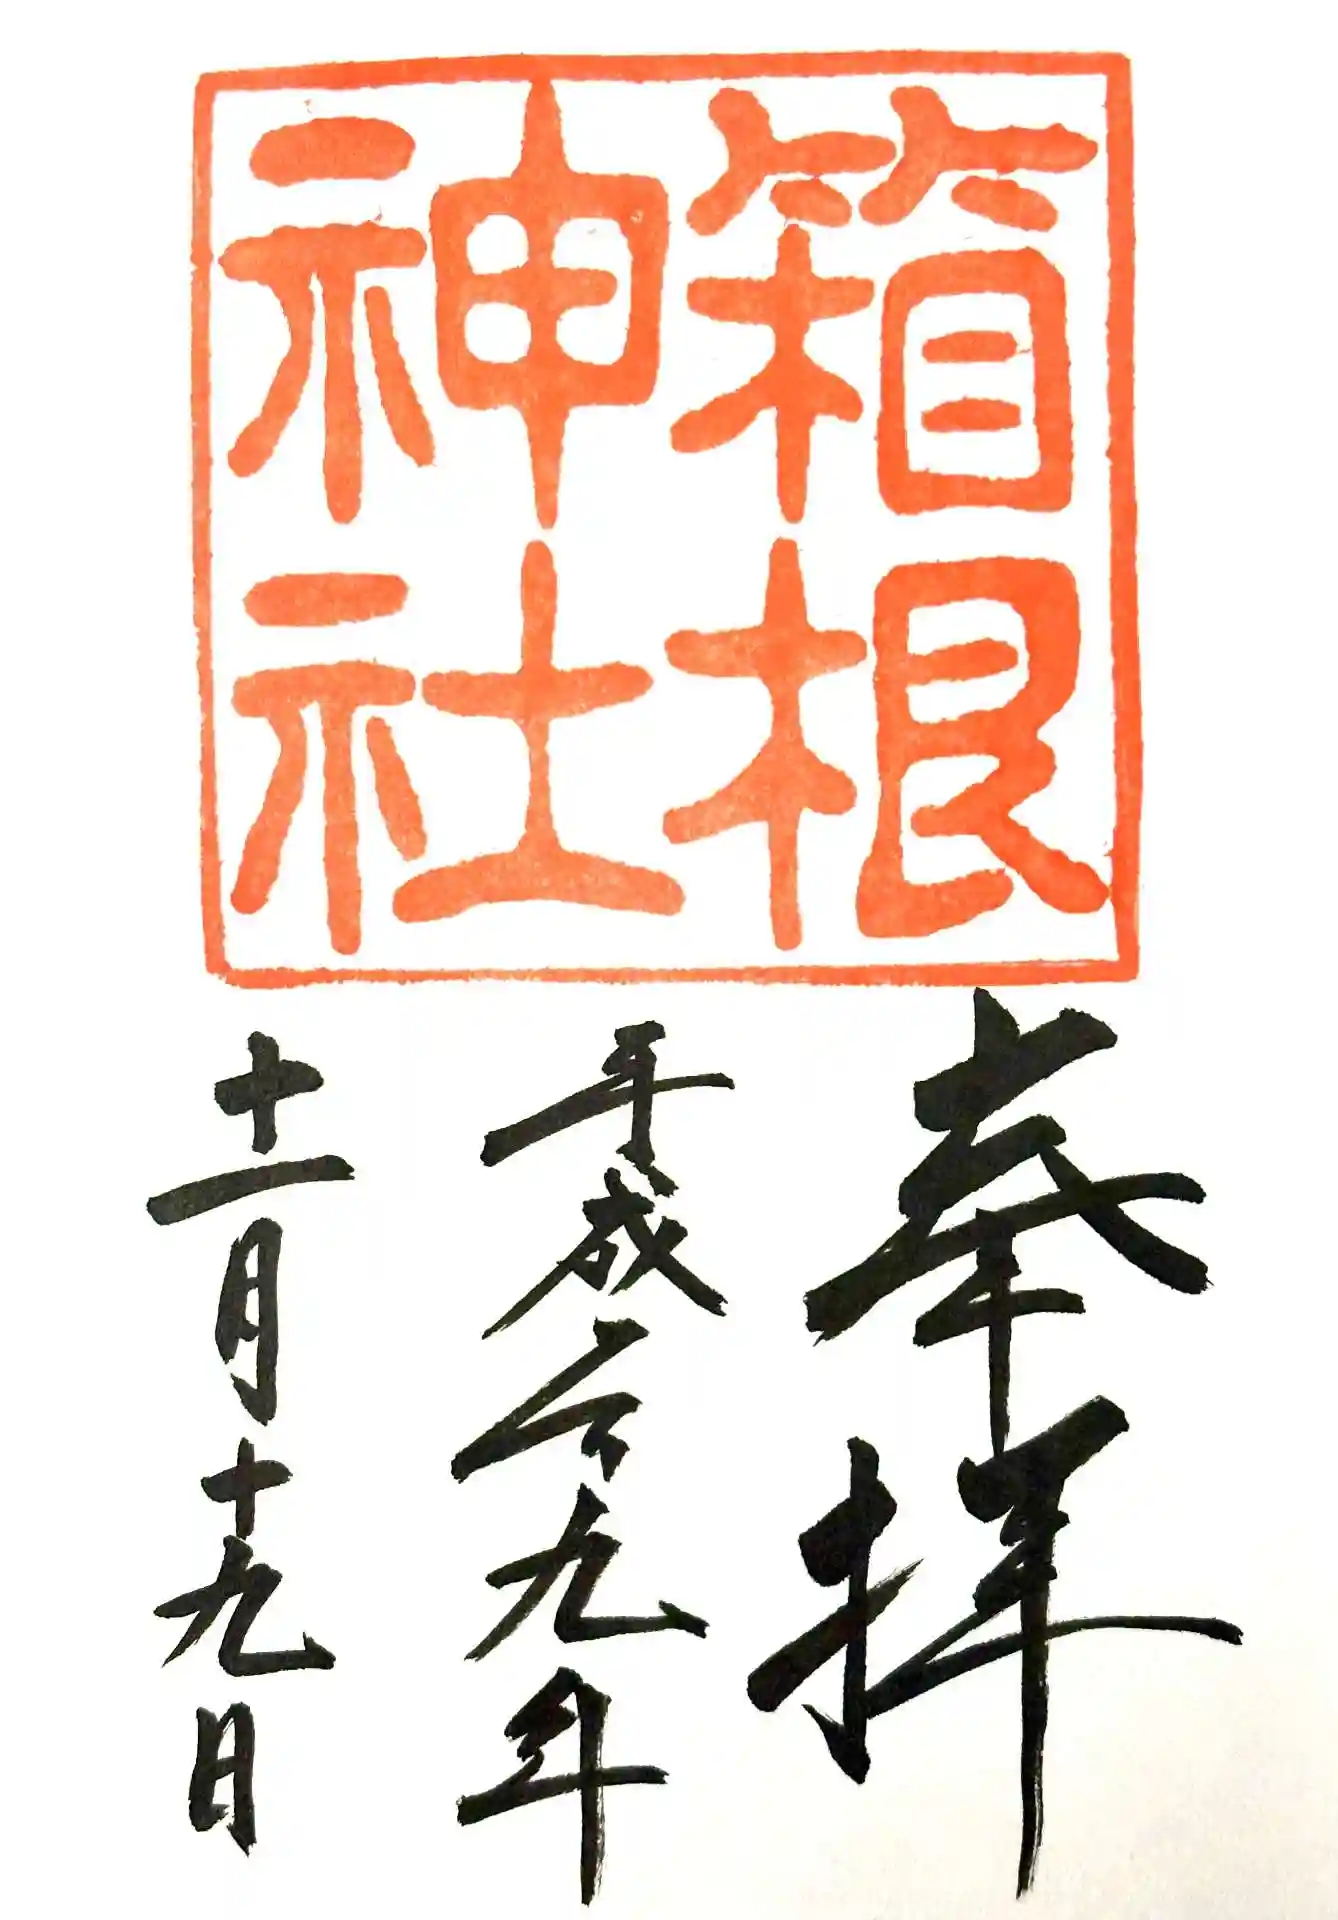 箱根
神社
奉拝
平成二九年
十一月十九日